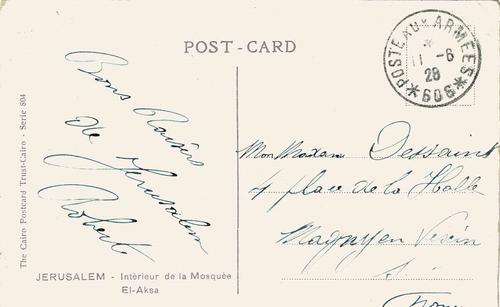 POST-CARD
POSTE AUX ARMEES
11 -6
28
*608*
Bons Baisers
de Jerusalem
Robert
The Cairo Postcard Trust-Cairo - Serie 804
JERUSALEM - Intérieur de la Mosquée
El-Aksa
Dessaint
4 place de la Halle
Magny en Vexin